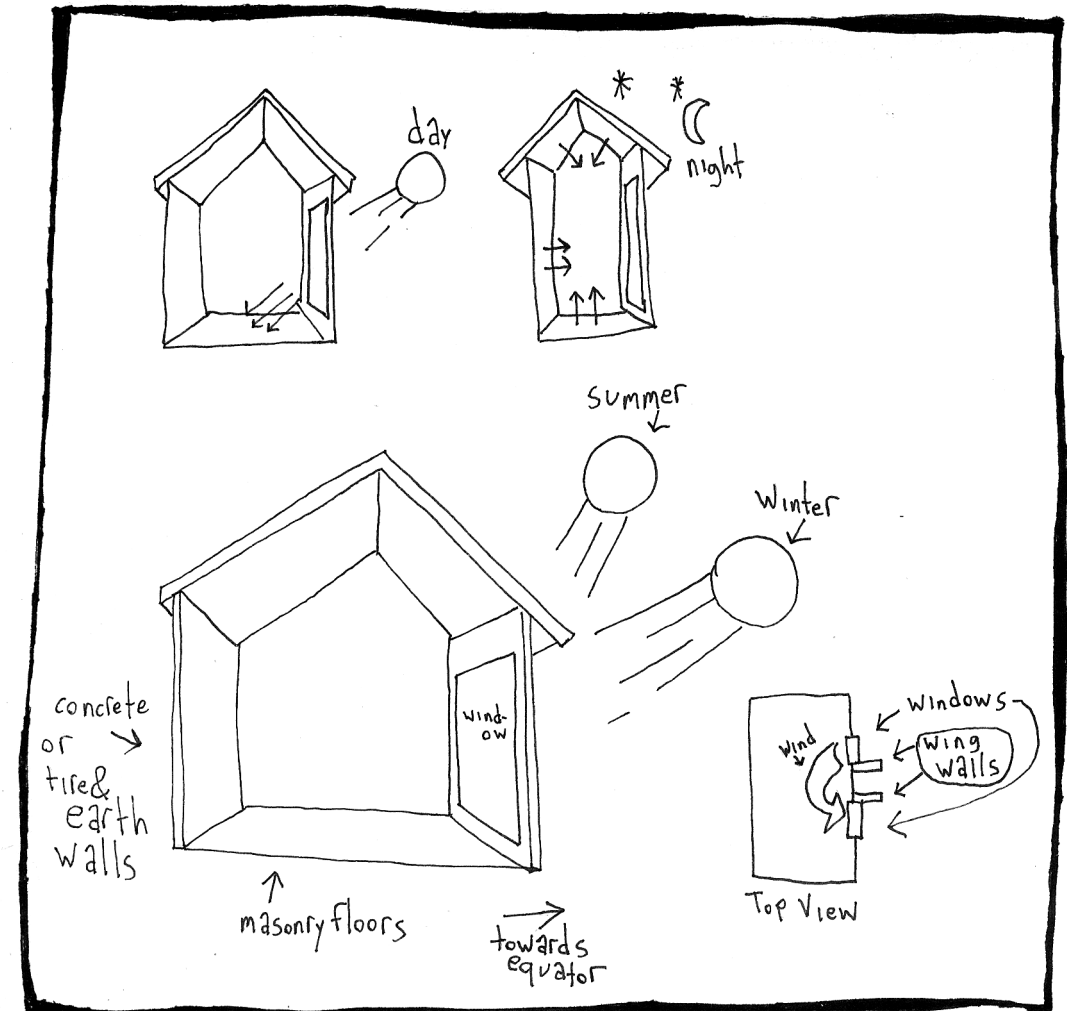 day
night
Summer
Winter
wind-
ow
concrete
or
tire&
earth
walls
masonry floors
towards
equator
windows
wing
walls
wind
Top View